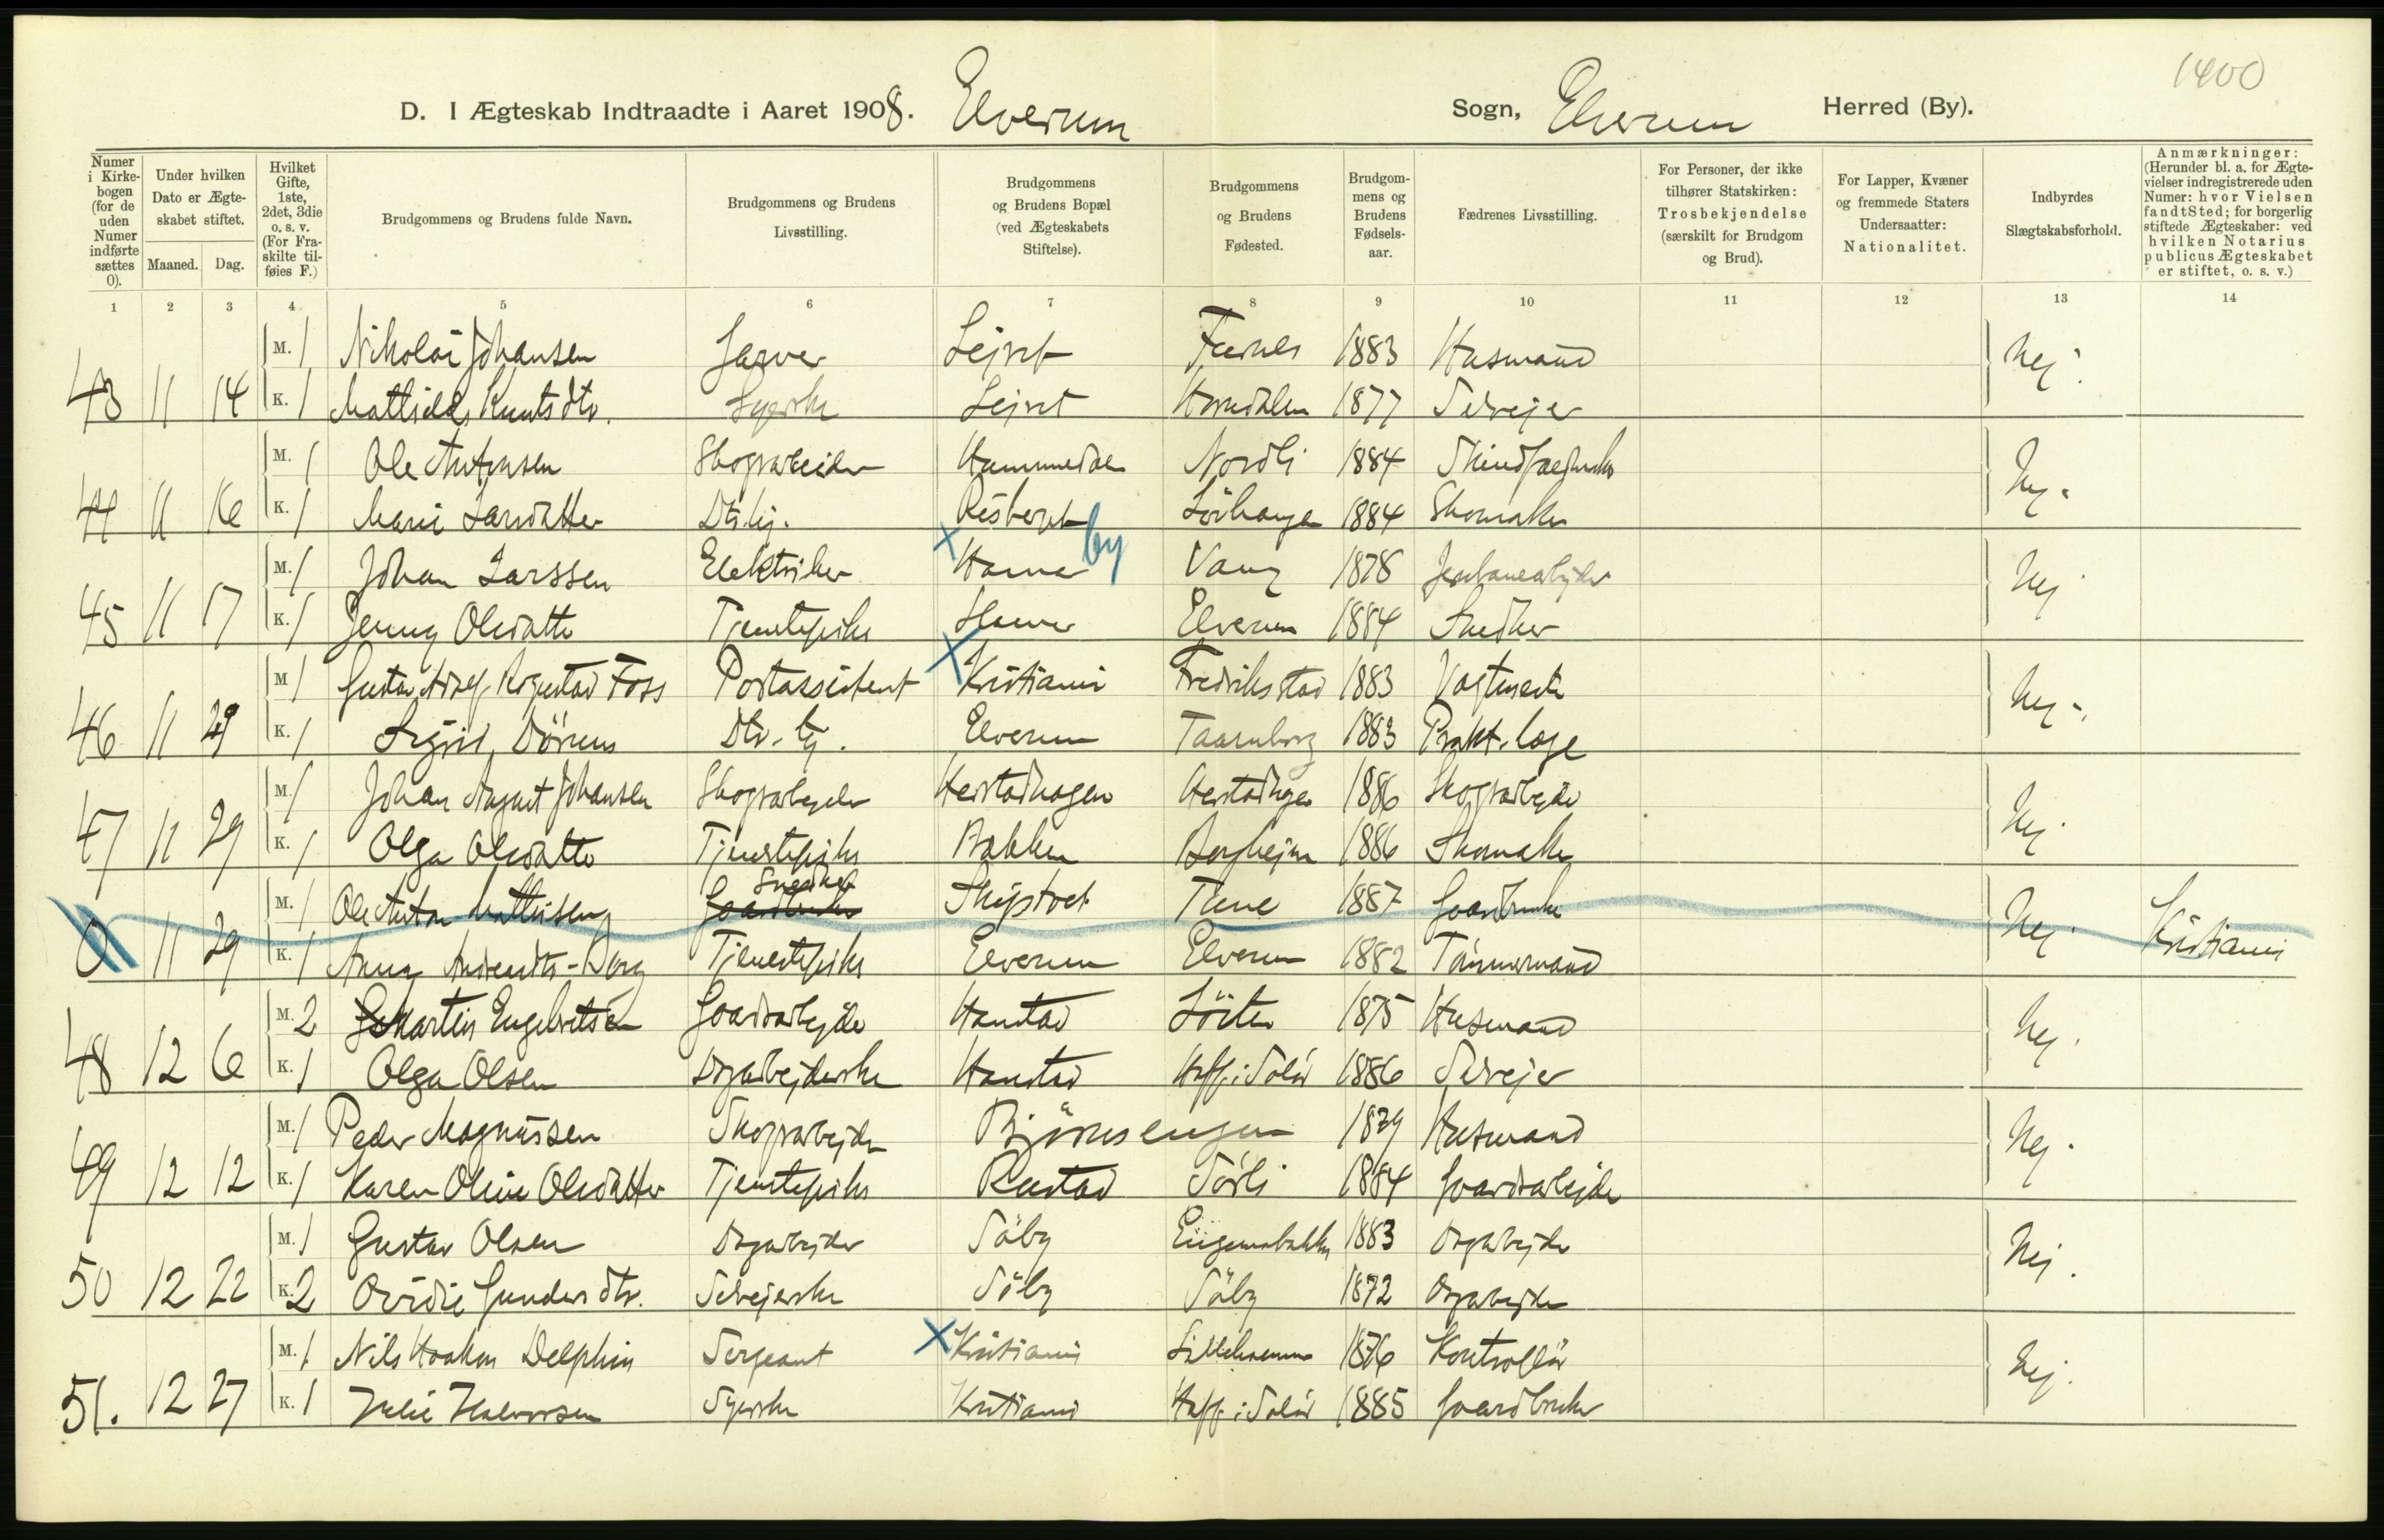 1400
D. I Ægteskab Indtraadte i Aaret 1908. Elverum Sogn, Elverum Herred (By).
Numer i Kirkebogen (for de uden Numer indførte sættes 0).
Under hvilken Dato er Ægteskabet stiftet.
Maaned. Dag.
Hvilket Gifte, 1ste, 2det, 3die o. s. v. (For Fraskilte tilføies F.)
Brudgommens og Brudens fulde Navn.
Brudgommens og Brudens Livsstilling.
Brudgommens og Brudens Bopæl (ved Ægteskabets Stiftelse).
Brudgommens og Brudens Fødested.
Brudgommens og Brudens Fødselsaar.
Fædrenes Livsstilling.
For Personer, der ikke tilhører Statskirken: Trosbekjendelse (særskilt for Brudgom og Brud).
For Lapper, Kvæner og fremmede Staters Undersaatter: Nationalitet.
Indbyrdes Slægtskabsforhold.
Anmærkninger: (Herunder bl. a. for Ægtevielser indregistrerede uden Numer: hvor Vielsen fandt Sted; for borgerlig stiftede Ægteskaber: ved hvilken Notarius publicus Ægteskabet er stiftet, o. s. v.)
1 2 3 4 5 6 7 8 9 10 11 12 13 14
M. 1 Nikolai Johansen Garver Lejret Furnes 1883 Husmand Nej.
43 11 14 K. 1 Mathilde Knutsdtr. Syerske Lejret 1877 Selvejer
M. 1 Ole Antonsen Skogsarbeider Nordli 1884 Nej.
44 11 16 K. 1 Marie Larsdatter Risberget 1884 Skomaker
M. 1 Johan Larssen Elektriker Hamar by Vang 1878 Jernbanearbejder Nej
45 11 17 K. 1 Jenny Olsdatter Tjenestepike Hamar Elverum 1884 Snedker
M. 1 Gustav Adolf Foss Postassistent Kristiania Fredriksstad 1883 Vagtmester Nej.
46 11 29 K. 1 Sigrid Dørum Elverum 1883 Prakt. læge
M. 1 Johan August Johansen Skogsarbejder Herstadhagen Herstadhagen 1886 Skogsarbejder Nej.
47 11 29 K. 1 Olga Olsdatter Tjenestepike Bakken Borgheim 1886 Skomaker
M. 1 Ole Anton Mathisen Snedker Gaardbruker Tune 1887 Gaardbruker Nej. Kristiania
0 11 29 K. 1 Anna Tjenestepike Elverum Elverum 1882 Tømmermand
M. 2 Martin Engebretsen Gaardarbejder Hanstad Löiten 1875 Husmand Nej.
48 12 6 K. 1 Olga Olsen Dagarbejderske Hanstad Hoff i Solør 1886 Selvejer
M. 1 Peder Magnussen Skogsarbejder Björnsengen 1879 Husmand Nej.
49 12 12 K. 1 Karen Oline Olsdatter Tjenestepike Rustad Sörli 1884 Gaardarbejder
M. 1 Gustav Olsen Dagarbejder Säby 1883 Dagarbejder Nej.
50 12 22 K. 2 Ovidie Gundersdtr. Selvejerske Säby Säby 1872 Dagarbejder
M. 1 Nils Haakon Delphin Sergeant Kristiania Lillehammer 1876 Kontrollør Nej.
51. 12 27 K. 1 Julie Halvorsen Syerske Kristiania Hoff i Solør 1885 Gaardbruker